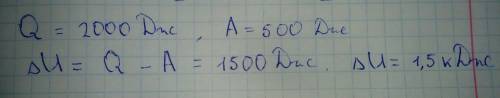 Q = 2000 Дж, A = 500 Дж
ΔU = Q - A = 1500 Дж. ΔU = 1,5 кДж